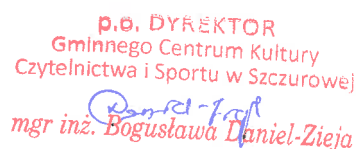 p.o. DYREKTOR
Gminnego Centrum Kultury
Czytelnictwa i Sportu w Szczurowej
mgr inż. Bogusława Daniel-Zieja